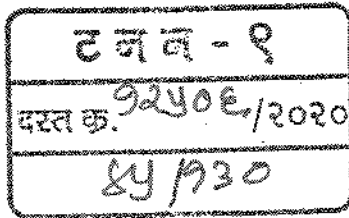 ट न न - ९
दस्त क्र. १२५०६/२०२०
४५/१३०